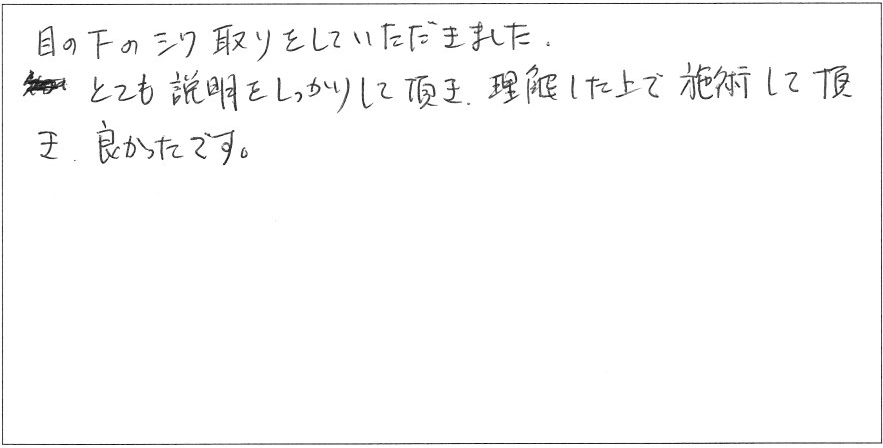 目の下のシワ取りをしていただきました.
とても説明をしっかりして頂き、理解した上で施術して頂
き、良かったです。